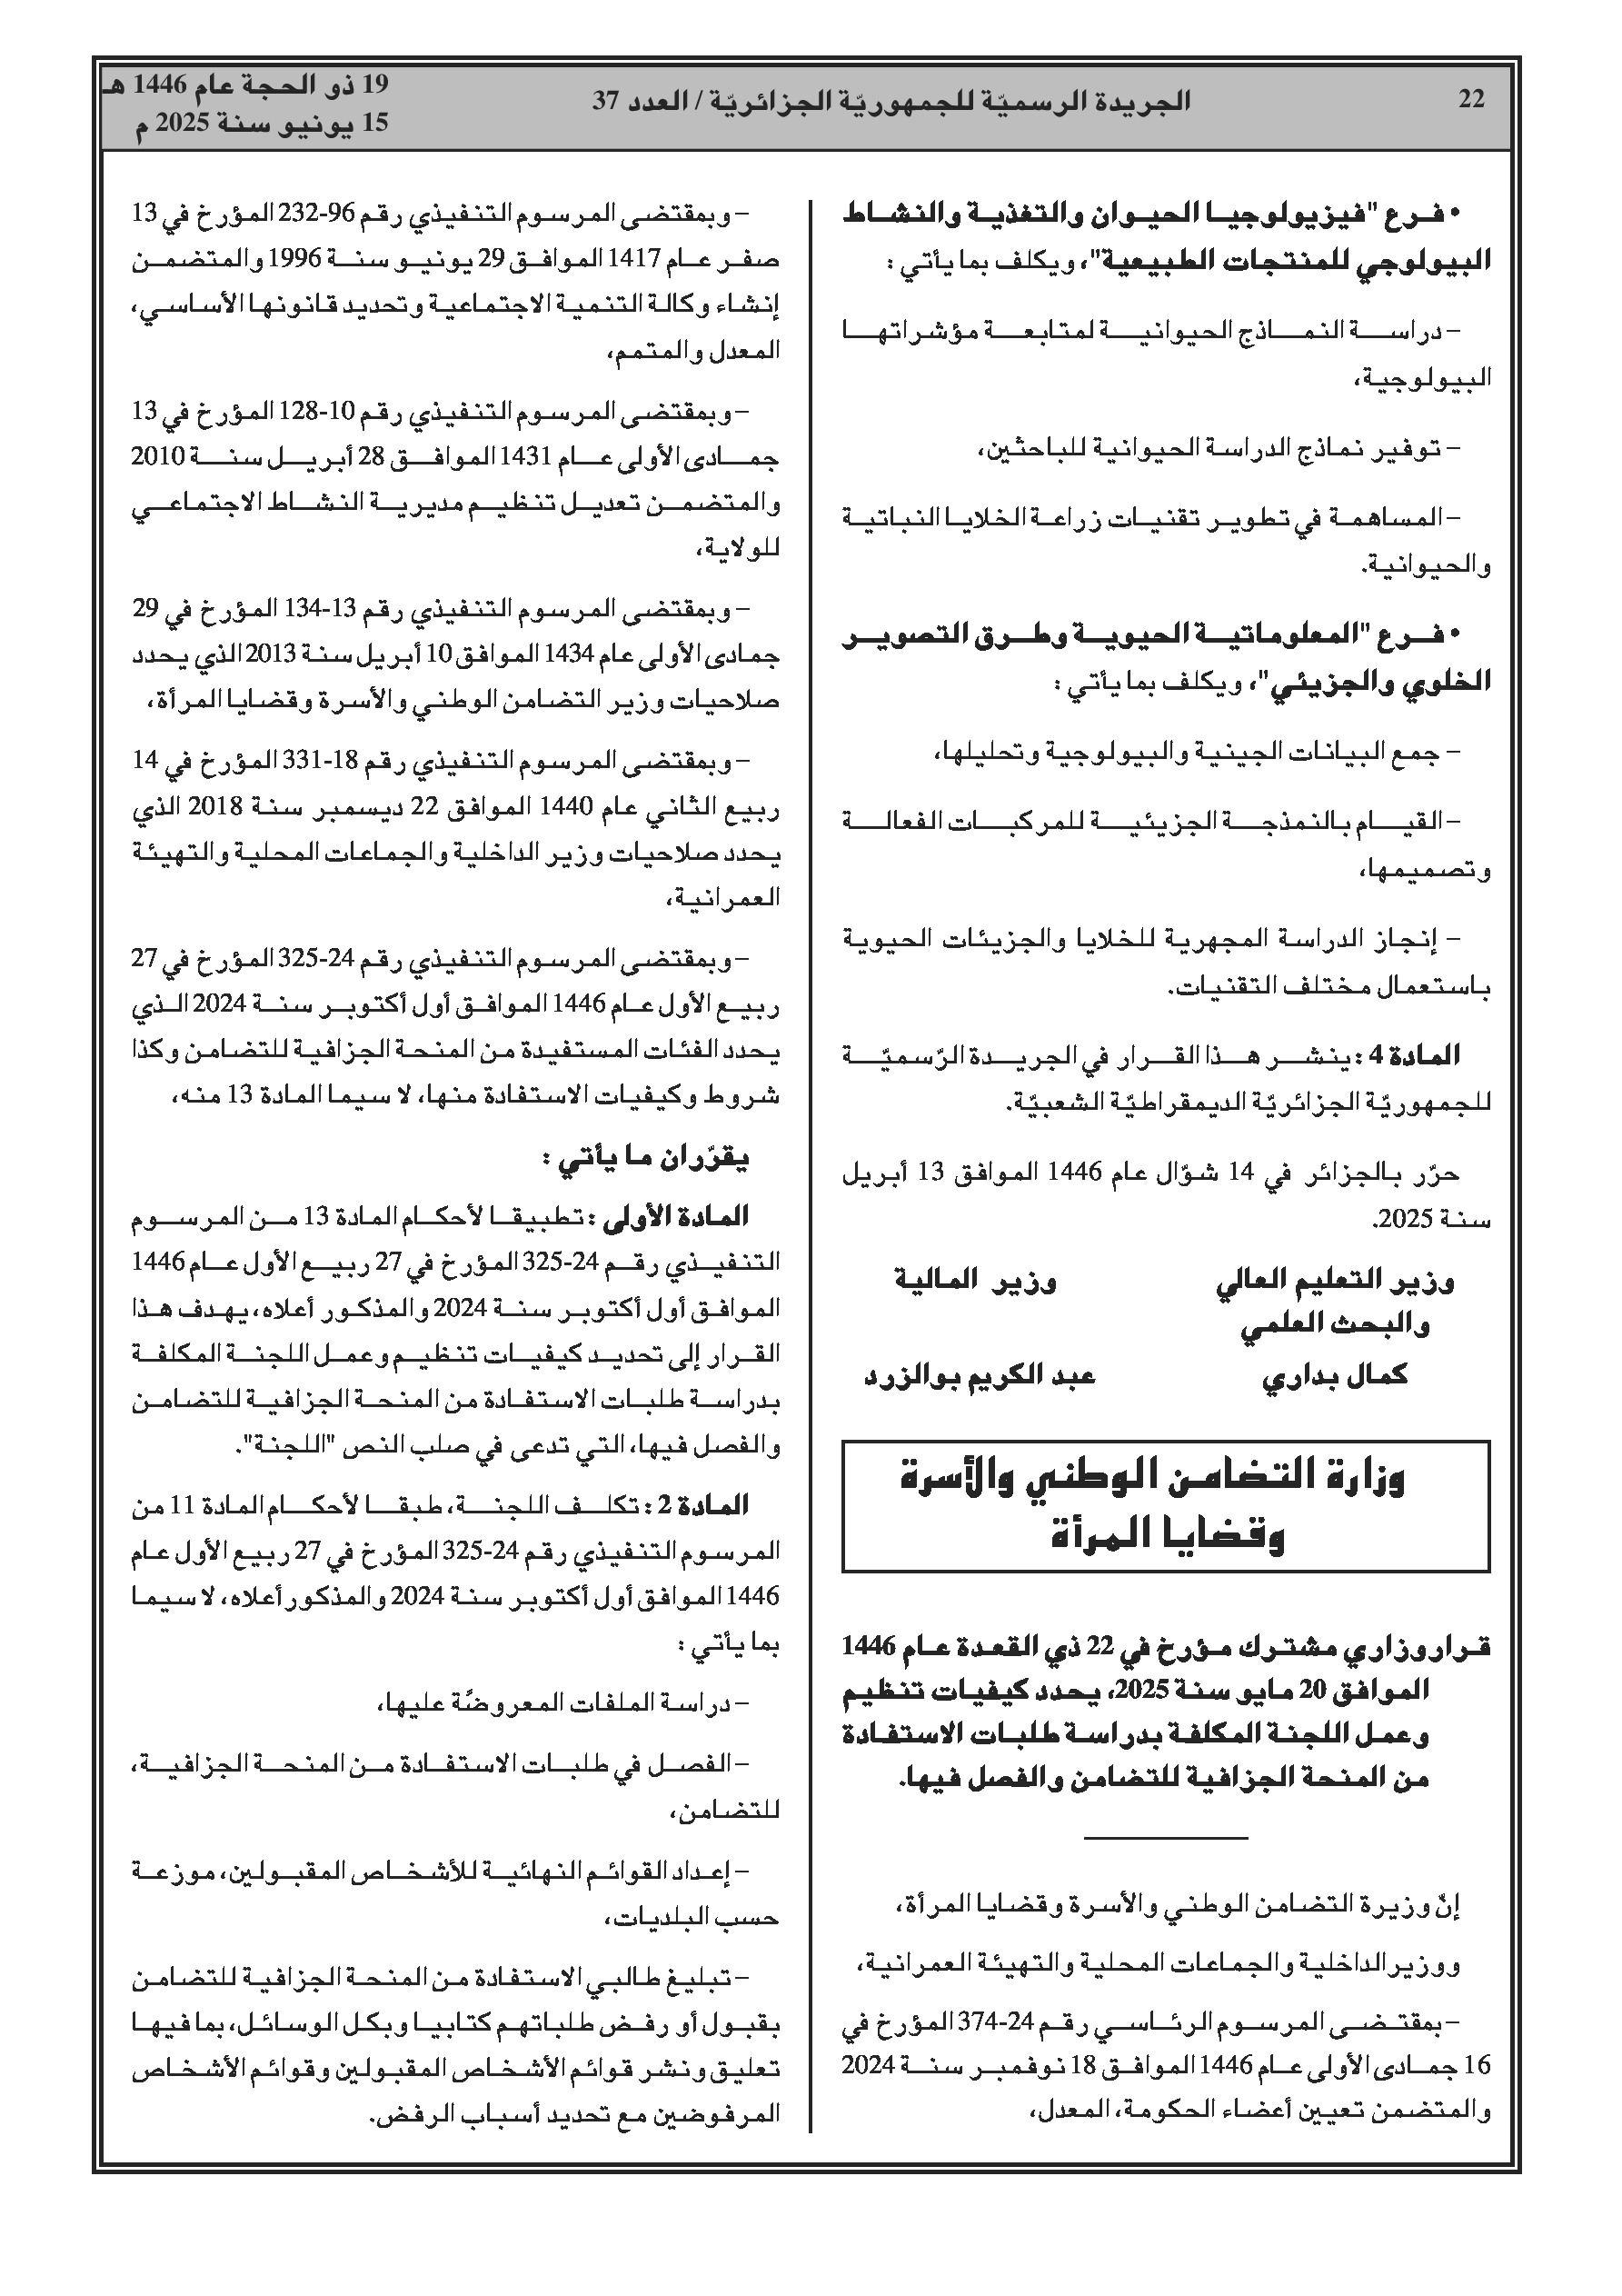 22
الجريدة الرسميّة للجمهوريّة الجزائريّة / العدد 37
19 ذو الحجة عام 1446 هـ
15 يونيو سنة 2025 م
• فـرع "فيزيولوجيـا الحيـوان والتغذيـة والنشـاط
البيولوجي للمنتجات الطبيعية"، ويكلف بما يأتي :
– دراسـة النمـاذج الحيوانيـة لمتابعـة مؤشراتهـا
البيولوجية،
– توفير نماذج الدراسة الحيوانية للباحثين،
– المساهمـة في تطويـر تقنيـات زراعـة الخلايـا النباتيـة
والحيوانية.
• فـرع "المعلوماتيـة الحيويـة وطـرق التصويـر
الخلوي والجزيئي"، ويكلف بما يأتي :
– جمع البيانات الجينية والبيولوجية وتحليلها،
– القيـام بالنمذجـة الجزيئيـة للمركبـات الفعالـة
وتصميمها،
– إنجاز الدراسة المجهرية للخلايا والجزيئات الحيوية
باستعمال مختلف التقنيات.
المادة 4 : ينشـر هـذا القـرار في الجريـدة الرّسميّـة
للجمهوريّة الجزائريّة الديمقراطيّة الشعبيّة.
حرّر بالجزائر في 14 شوّال عام 1446 الموافق 13 أبريل
سنة 2025.
وزير التعليم العالي
والبحث العلمي
كمال بداري
وزير المالية
عبد الكريم بوالزرد
وزارة التضامن الوطني والأسرة
وقضايا المرأة
قرار وزاري مشترك مؤرخ في 22 ذي القعدة عام 1446
الموافق 20 مايو سنة 2025، يحدد كيفيات تنظيم
وعمل اللجنة المكلفة بدراسة طلبات الاستفادة
من المنحة الجزافية للتضامن والفصل فيها.
إنّ وزيرة التضامن الوطني والأسرة وقضايا المرأة،
ووزير الداخلية والجماعات المحلية والتهيئة العمرانية،
– بمقتضى المرسوم الرئاسي رقم 24-374 المؤرخ في
16 جمادى الأولى عام 1446 الموافق 18 نوفمبر سنة 2024
والمتضمن تعيين أعضاء الحكومة، المعدل،
– وبمقتضى المرسوم التنفيذي رقم 96-232 المؤرخ في 13
صفر عام 1417 الموافق 29 يونيو سنة 1996 والمتضمن
إنشاء وكالة التنمية الاجتماعية وتحديد قانونها الأساسي،
المعدل والمتمم،
– وبمقتضى المرسوم التنفيذي رقم 10-128 المؤرخ في 13
جمادى الأولى عام 1431 الموافق 28 أبريل سنة 2010
والمتضمن تعديل تنظيم مديرية النشاط الاجتماعي
للولاية،
– وبمقتضى المرسوم التنفيذي رقم 13-134 المؤرخ في 29
جمادى الأولى عام 1434 الموافق 10 أبريل سنة 2013 الذي يحدد
صلاحيات وزير التضامن الوطني والأسرة وقضايا المرأة،
– وبمقتضى المرسوم التنفيذي رقم 18-331 المؤرخ في 14
ربيع الثاني عام 1440 الموافق 22 ديسمبر سنة 2018 الذي
يحدد صلاحيات وزير الداخلية والجماعات المحلية والتهيئة
العمرانية،
– وبمقتضى المرسوم التنفيذي رقم 24-325 المؤرخ في 27
ربيع الأول عام 1446 الموافق أول أكتوبر سنة 2024 الذي
يحدد الفئات المستفيدة من المنحة الجزافية للتضامن وكذا
شروط وكيفيات الاستفادة منها، لا سيما المادة 13 منه،
يقرّران ما يأتي :
المادة الأولى : تطبيقا لأحكام المادة 13 من المرسوم
التنفيذي رقم 24-325 المؤرخ في 27 ربيع الأول عام 1446
الموافق أول أكتوبر سنة 2024 والمذكور أعلاه، يهدف هذا
القرار إلى تحديد كيفيات تنظيم وعمل اللجنة المكلفة
بدراسة طلبات الاستفادة من المنحة الجزافية للتضامن
والفصل فيها، التي تدعى في صلب النص "اللجنة".
المادة 2 : تكلف اللجنة، طبقا لأحكام المادة 11 من
المرسوم التنفيذي رقم 24-325 المؤرخ في 27 ربيع الأول عام
1446 الموافق أول أكتوبر سنة 2024 والمذكور أعلاه، لا سيما
بما يأتي :
– دراسة الملفات المعروضة عليها،
– الفصل في طلبات الاستفادة من المنحة الجزافية،
للتضامن،
– إعداد القوائم النهائية للأشخاص المقبولين، موزعة
حسب البلديات،
– تبليغ طالبي الاستفادة من المنحة الجزافية للتضامن
بقبول أو رفض طلباتهم كتابيا وبكل الوسائل، بما فيها
تعليق ونشر قوائم الأشخاص المقبولين وقوائم الأشخاص
المرفوضين مع تحديد أسباب الرفض.